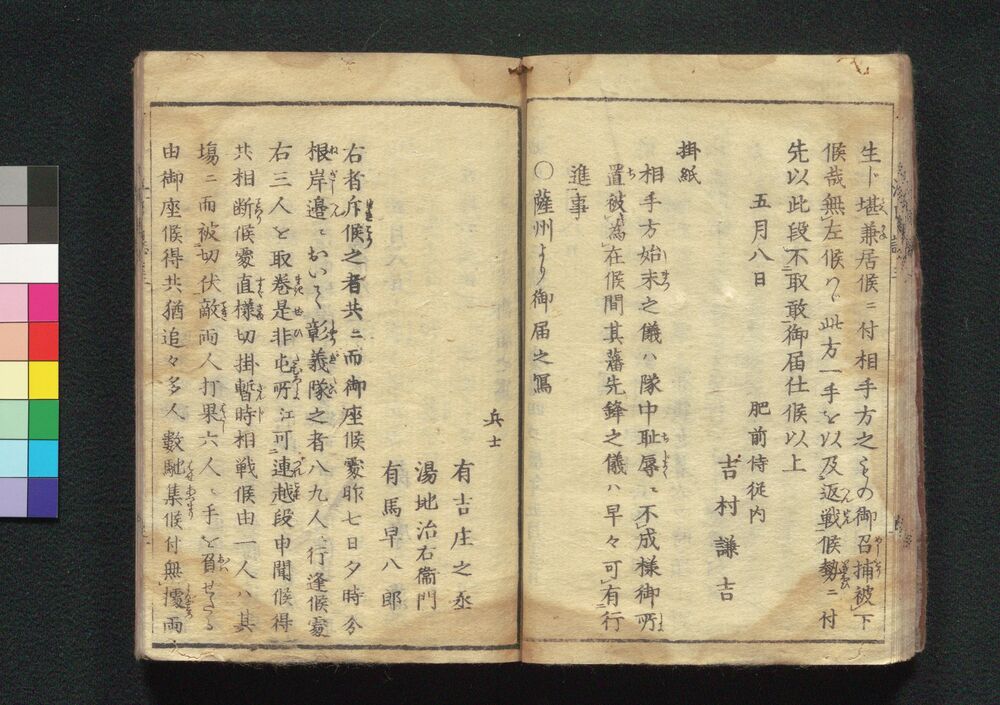 生ド堪兼居候ニ付相手方之ものゝ御召捕被下
候哉無左候ハヾ此方一手を以及返戦候勢ニ付
先以此段不取敢御届仕候以上
五月八日
肥前侍従内
吉村謙吉
掛紙
相手方始末之儀ハ隊中耻辱ニ不成様御所
置被為在候間其藩先鋒之儀ハ早々可有行
進事
○薩州より御届之写
兵士
有吉庄之丞
湯地治右衛門
有馬早八郎
右者斥候之者共ニ而御座候処昨七日夕時分
根岸邊ニおいて彰義隊之者八九人ニ行逢候処
右三人を取巻是非屯所江可連越段申聞候得
共相断候処直様切掛暫時相戦候由一人ハ其
場ニ而被切伏敵両人打果六人ニ手を負せたる
由御座候得共猶追々多人數馳集候付無據両